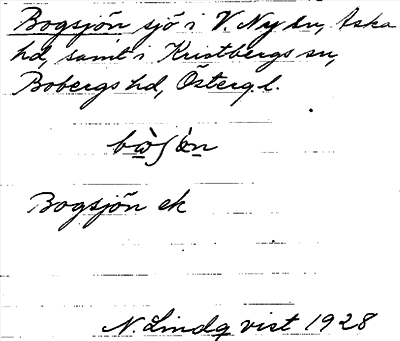 Bogsjön sjö i V. Ny sn, Aska
hd, samt i Kristbergs sn,
Bobergs hd, Österg. l.
bὼʃɶ̀n
Bogsjön ek
N. Lindqvist 1928